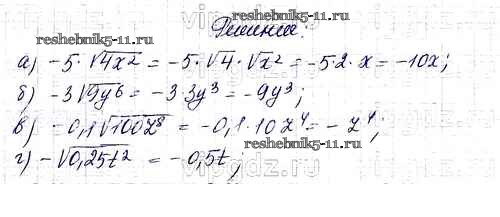 reshebnik5-11.ru
Решение.
reshebnik5-11.ru
а) -5·√4x² = -5·√4·√x² = -5·2·x = -10x;
б) -3√9y⁶ = -3·3y³ = -9y³;
в) -0,1√100z⁸ = -0,1·10z⁴ = -z⁴;
reshebnik5-11.ru
г) -√0,25t² = -0,5t;
reshebnik5-11.ru